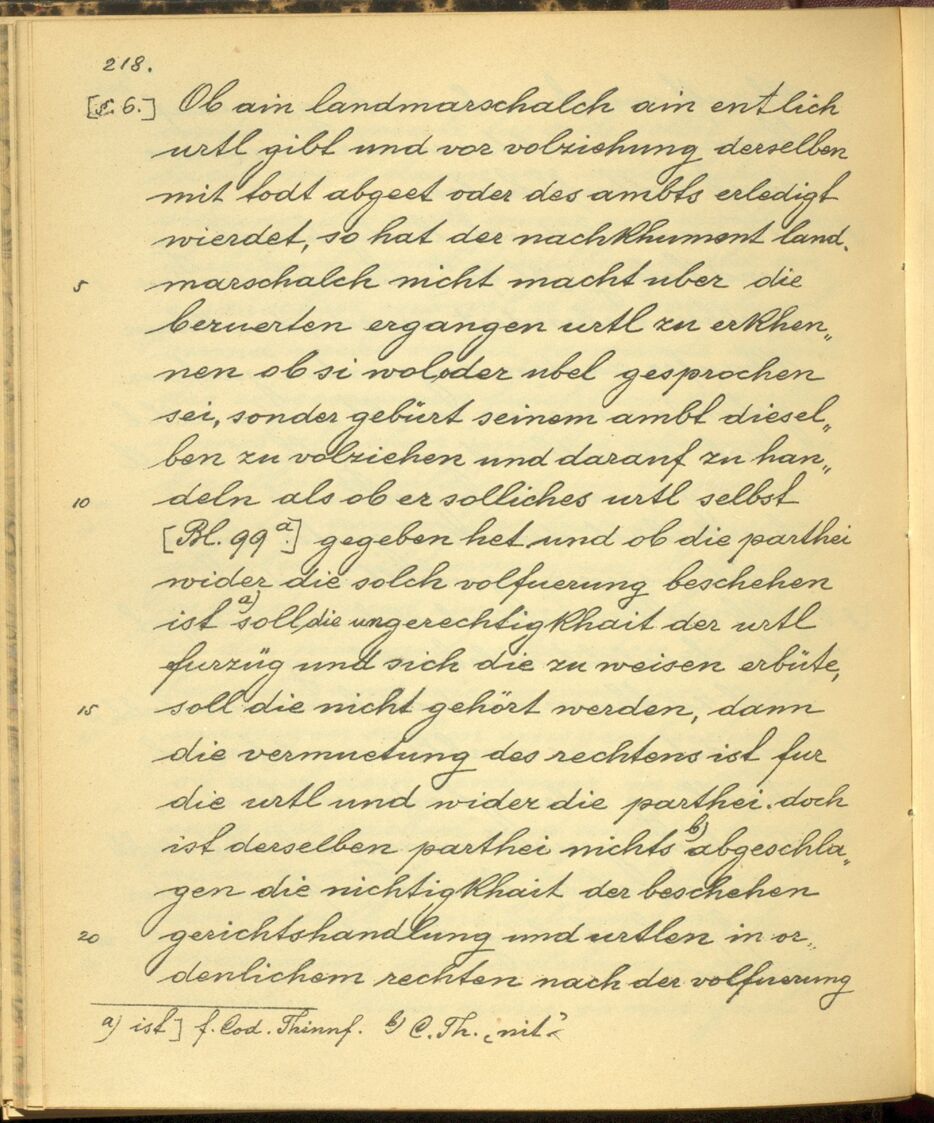 218.
[§ 6.] Ob ain landmarschalch ain entlich
urtl gibt und vor volziehung derselben
mit todt abgeet oder des ambts erledigt
wierdet, so hat der nachkhument land„
5 marschalch nicht macht uber die
beruerten ergangen urtl zu erkhen„
nen ob si wol oder ubel gesprochen
sei, sonder gebürt seinem ambt diesel„
ben zu volziehen und darauf zu han„
10 deln als ob er solliches urtl selbst
[Bl. 99ª.] gegeben het und ob die parthei
wider die solch volfuerung beschehen
ist a) soll die ungerechtigkhait der urtl
furzüg und sich die zu weisen erbüte,
15 soll die nicht gehört werden, dann
die vermuetung des rechtens ist fur
die urtl und wider die parthei. doch
ist derselben parthei nichts b) abgeschla„
gen die nichtigkhait der beschehen
20 gerichtshandlung und urtlen in or„
denlichem rechten nach der volfuerung
a) ist] f. Cod. Thinnf. b) C. Th. „nit“